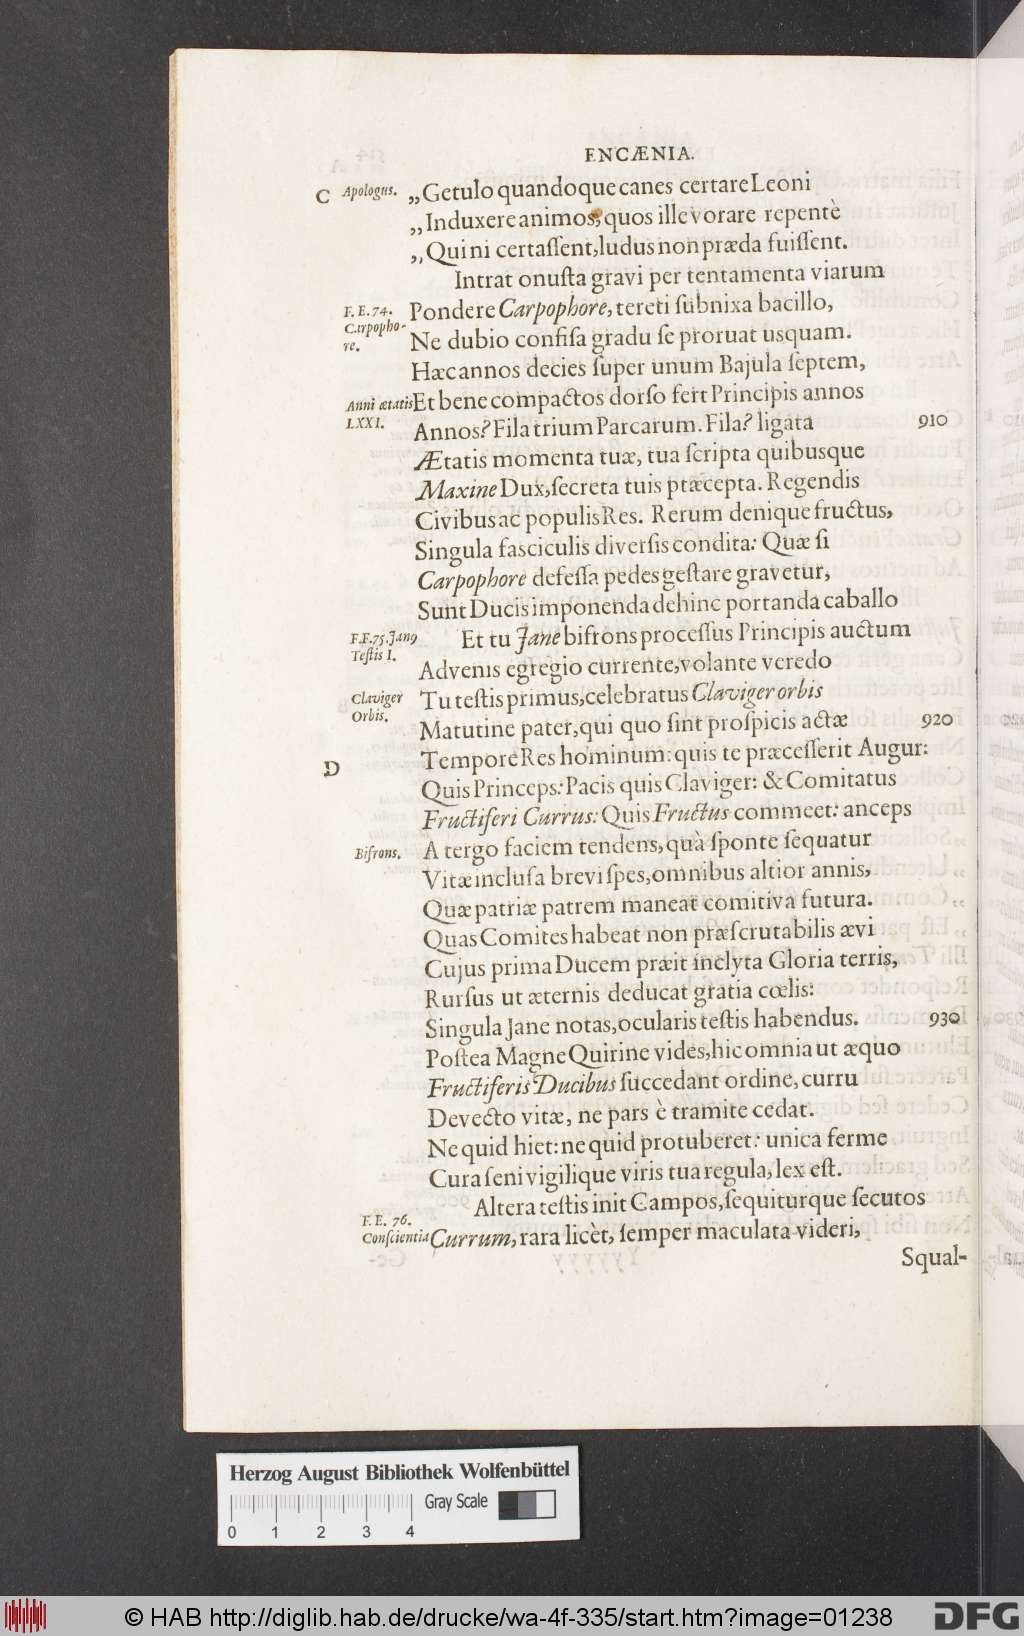 ENCÆNIA.
C Apologus. „Getulo quandoque canes certare Leoni
„Induxere animos, quos ille vorare repentè
„Qui ni certaſſent, ludus non præda fuiſſent.
Intrat onuſta gravi per tentamenta viarum
F. E. 74. Pondere Carpophore, tereti ſubnixa bacillo,
Carpopho-
re. Ne dubio confiſa gradu ſe proruat usquam.
Hæc annos decies ſuper unum Bajula ſeptem,
Anni ætatis Et bene compactos dorſo fert Principis annos
LXXI. Annos? Fila trium Parcarum. Fila? ligata 910
Ætatis momenta tuæ, tua ſcripta quibusque
Maxine Dux, ſecreta tuis ptæcepta. Regendis
Civibus ac populis Res. Rerum denique fructus,
Singula faſciculis diverſis condita: Quæ ſi
Carpophore defeſſa pedes geſtare gravetur,
Sunt Ducis imponenda dehinc portanda caballo
F. E. 75. Jang Et tu Jane bifrons proceſſus Principis auctum
Teſtis I. Advenis egregio currente, volante veredo
Claviger Tu teſtis primus, celebratus Claviger orbis
Orbis. Matutine pater, qui quo ſint proſpicis actæ 920
D Tempore Res hominum: quis te præceſſerit Augur:
Quis Princeps: Pacis quis Claviger: & Comitatus
Fructiferi Currus: Quis Fructus commeet: anceps
Bifrons. A tergo faciem tendens, quà ſponte ſequatur
Vitæ incluſa brevi ſpes, omnibus altior annis,
Quæ patriæ patrem maneat comitiva futura.
Quas Comites habeat non præſcrutabilis ævi
Cujus prima Ducem præit inclyta Gloria terris,
Rurſus ut æternis deducat gratia cœlis:
Singula Jane notas, ocularis teſtis habendus. 930
Poſtea Magne Quirine vides, hic omnia ut æquo
Fructiferis Ducibus ſuccedant ordine, curru
Devecto vitæ, ne pars è tramite cedat.
Ne quid hiet: ne quid protuberet: unica ferme
Cura ſeni vigilique viris tua regula, lex eſt.
Altera teſtis init Campos, ſequiturque ſecutos
F. E. 76.
Conſcientia Currum, rara licèt, ſemper maculata videri,
Squal-
Herzog August Bibliothek Wolfenbüttel
Gray Scale
0 1 2 3 4
© HAB http://diglib.hab.de/drucke/wa-4f-335/start.htm?image=01238
DFG